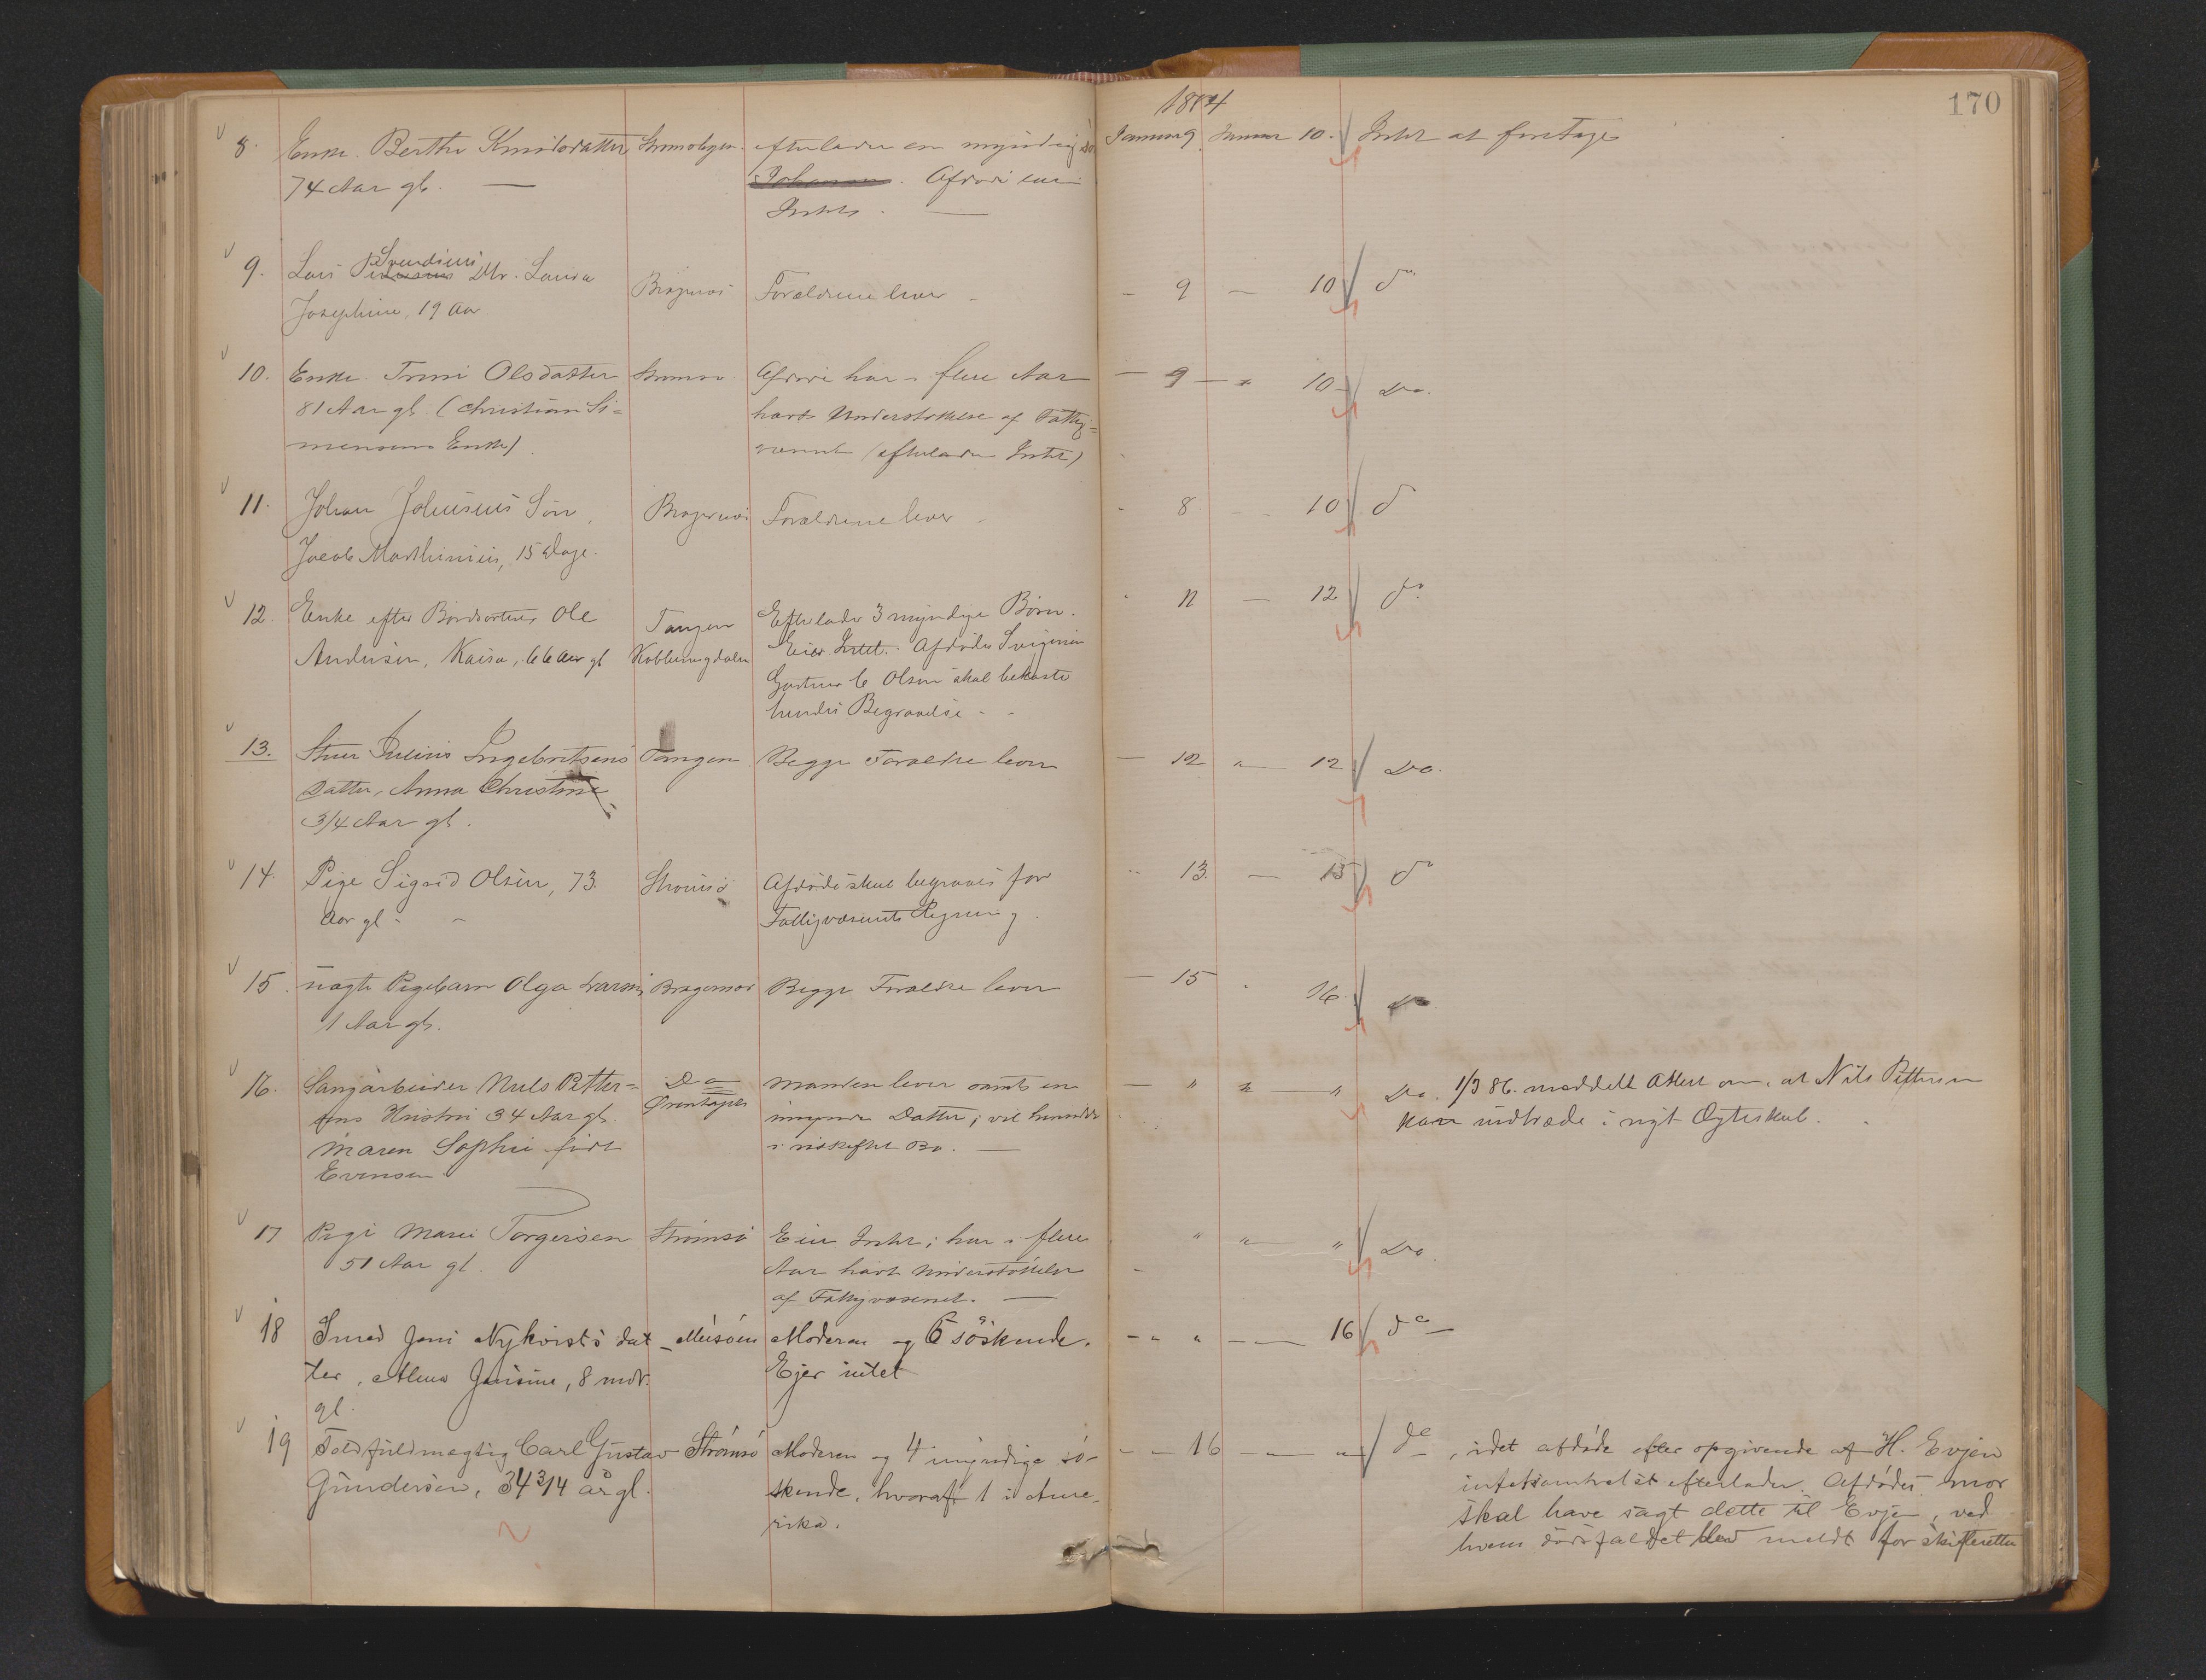 1884
170
8. Enke Berthe Knudsdatter Strømsløpen efterlader en myndig
Januar 9 Januar 10. Intet at foretage
74 Aar gl. — Johansen. Afdøde eier
Intet. —
9. Lars Svendsens Dtr. Laura Bragernæs Forældrene lever - - 9 — 10 do
Josephine, 19 Aar
10. Enke Trine Olsdatter Strømsø Afdøde har i flere Aar — 9 — " 10 Do.
81 Aar gl. (Christian Si-
havt Understøttelse af Fattig=
mensens Enke)
væsenet (efterlader Intet)
11. Johan Johnsens Søn, Bragernæs Forældrene lever - " 8 — 10 do
Jacob Marthinius, 15 Dage.
12. Enke efter Bordsorterer Ole Tangen Efterlader 3 myndige Børn. " 11 — 12 do
Andersen, Kaisa, 66 Aar gl Kobberugdalen Eier Intet. Afdødes Svigersøn
Olsen skal bekoste
hendes Begravelse - -
13. Julius Ingebretsens Tangen Begge Forældre lever — 12 " — 12 Do.
Datter, Anna Christine
3/4 Aar gl.
14. Pige Sigrid Olsen, 73 Strømsø Afdøde skal begraves for " 13. — 15 do
Aar gl. - Fattigvæsenets Regning.
15. uægte Pigebarn Olga Larsen, Bragernæs Begge Forældre lever — 15 " 16. Do
1 Aar gl.
16. Sangarbeider Nils Petter= Do Manden lever samt en — " " — " Do. 1/3 86. meddelt Attest om, at Nils Pettersen
sens Hustru 34 Aar gl. umynd. Datter; vil hensidde kan indtræde i nyt Ægteskab.
Maren Sophie født i uskiftet Bo. —
Evensen
17 Pige Marie Torgersen Strømsø Eier Intet; har i flere " " — " Do
51 Aar gl. Aar havt Understøttelse
af Fattigvæsenet. —
18 Smed Jens Nykvists dat- Moderen og 6 søskende. - " " — — 16 do —
ter, Alma Jensine, 8 mdr. Ejer intet
gl.
19 Toldfuldmægtig Carl Gustav Strømsø Moderen og 4 myndige sø- - — 16 — " — " do, idet afdøde efter opgivende af H. Evjen
Gundersen, 34 3/4 år gl. skende, hvoraf 1 i Ame- intetsomhelst efterlader. Afdødes mor
rika. skal have sagt dette til Evjen, ved
hvem dødsfaldet blev meldt for skifteretten